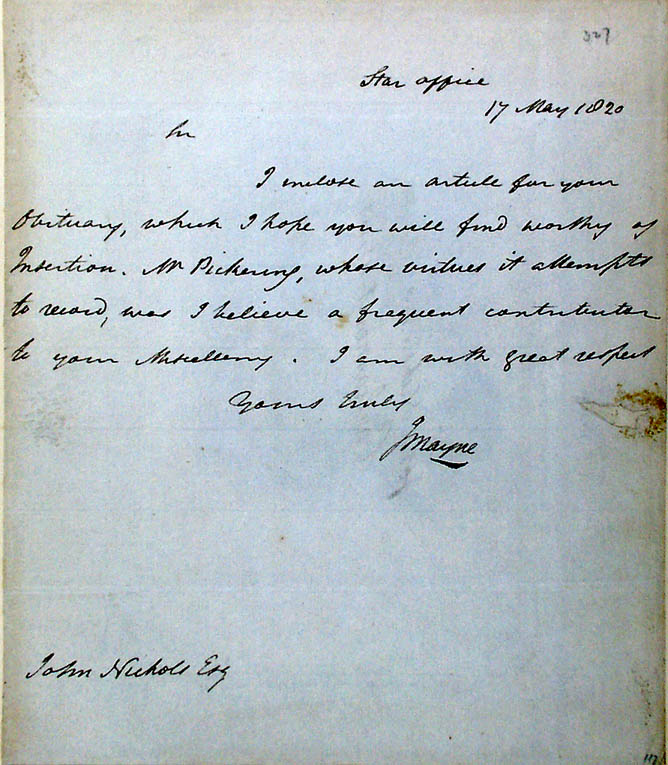 327
Star office
17 May 1820
Sir
I inclose an article for your
Obituary, which I hope you will find worthy of
Insertion. Mr Pickering, whose virtues it attempts
to record, was I believe a frequent contributor
to your Miscellany. I am with great respect
Yours truly
J Mayne
John Nichols Esq